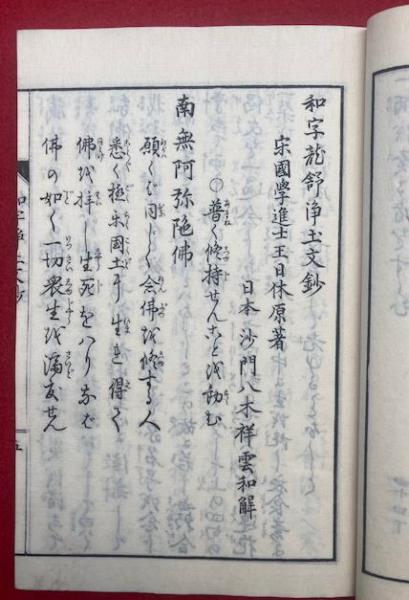 和字龍舒浄土文鈔
宋國學進士王日休原著
日本 沙門八木祥雲和解
○普く修持せんことを勧む
南無阿弥陀佛
願くば同じく念佛を修する人
悉く極乐国土に生れ得て
佛を拝し生死をはり
佛の如く一切衆生を済度せん
和字
土文鈔
五